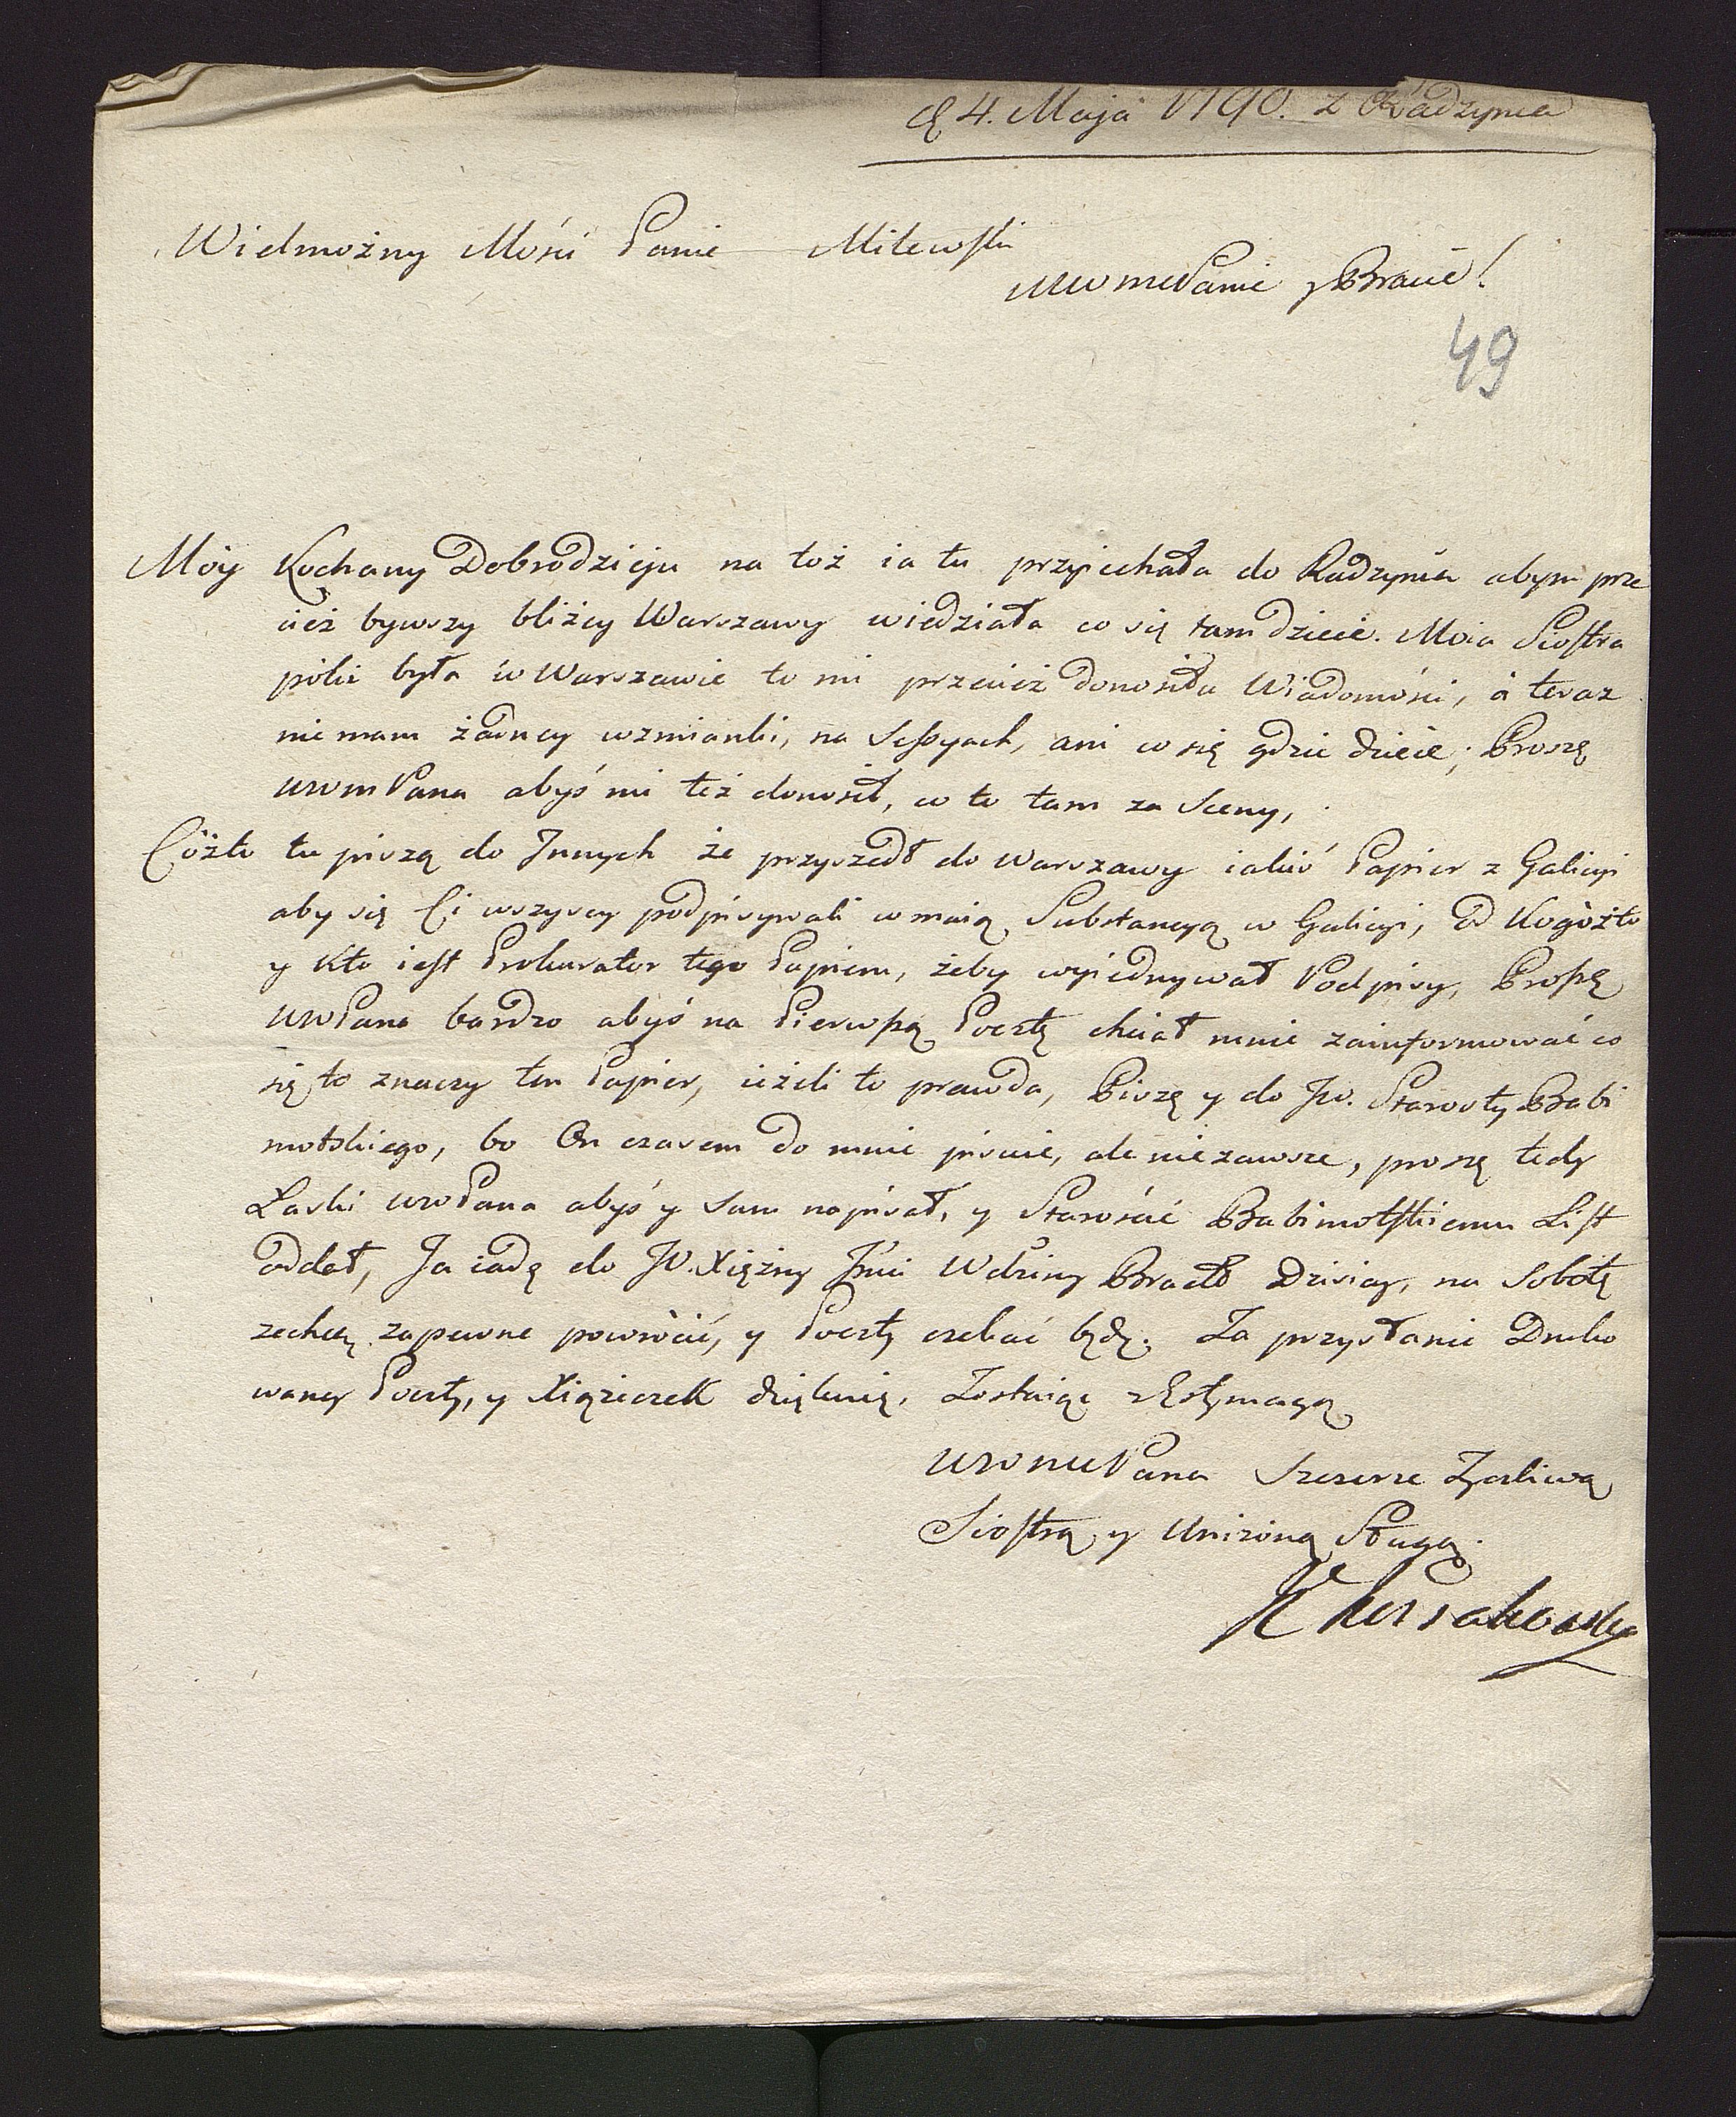 d 4. Maja 1790. z Radzynia
Wielmożny Mości Panie Milewski
WMM Panie y Bracie!
49
Móy Kochany Dobrodzieju na toż ia tu przyiechała do Radzynia abym prze
cież bywszy bliżey Warszawy wiedziała co się tam dzieie. Moia Siostra
póki była w Warszawie to mi przecież donosiła Wiadomości, à teraz
nie mam żadney wzmianki, na Sessyach, ani co się gdzie dzieie; Proszę
WWM Pana abyś mi też donosił, co to tam za Sceny,
Cóżto tu piszą do Innych że przyszedł do Warszawy iakiś Papier z Galicyi
aby się Ci wszyscy podpisywali co maią Substancyą w Galicyi, Od Kogóżto
y Kto iest Prokurator tego Papieru, żeby wyiednywał Podpisy, Proszę
WWPana bardzo abyś na Pierwszą Pocztę chciał mnie zainformować co
się to znaczy ten Papier, ieżeli to prawda, Piszę y do JW. Starosty Babi
mostskiego, bo On czasem do mnie pisuie, ale nie zawsze, proszę tedy
Łaski WWPana abyś y Sam napisał, y Starościē Babimostskiemu List
oddał, Ja iadę do JO. Xiężny Jmci Wdziny Bracł Dzisiay, na Sobotę
zechcę zapewne powrócić, y Poczty czekać będę. Za przysłanie Druko
waney Poczty, y Xiążeczek dziękuię. Zostaiąc z Estymacyą
WWM Pana Szczerze Zyczliwą
Siostrą y Uniżoną Sługą.
K Kossakowska